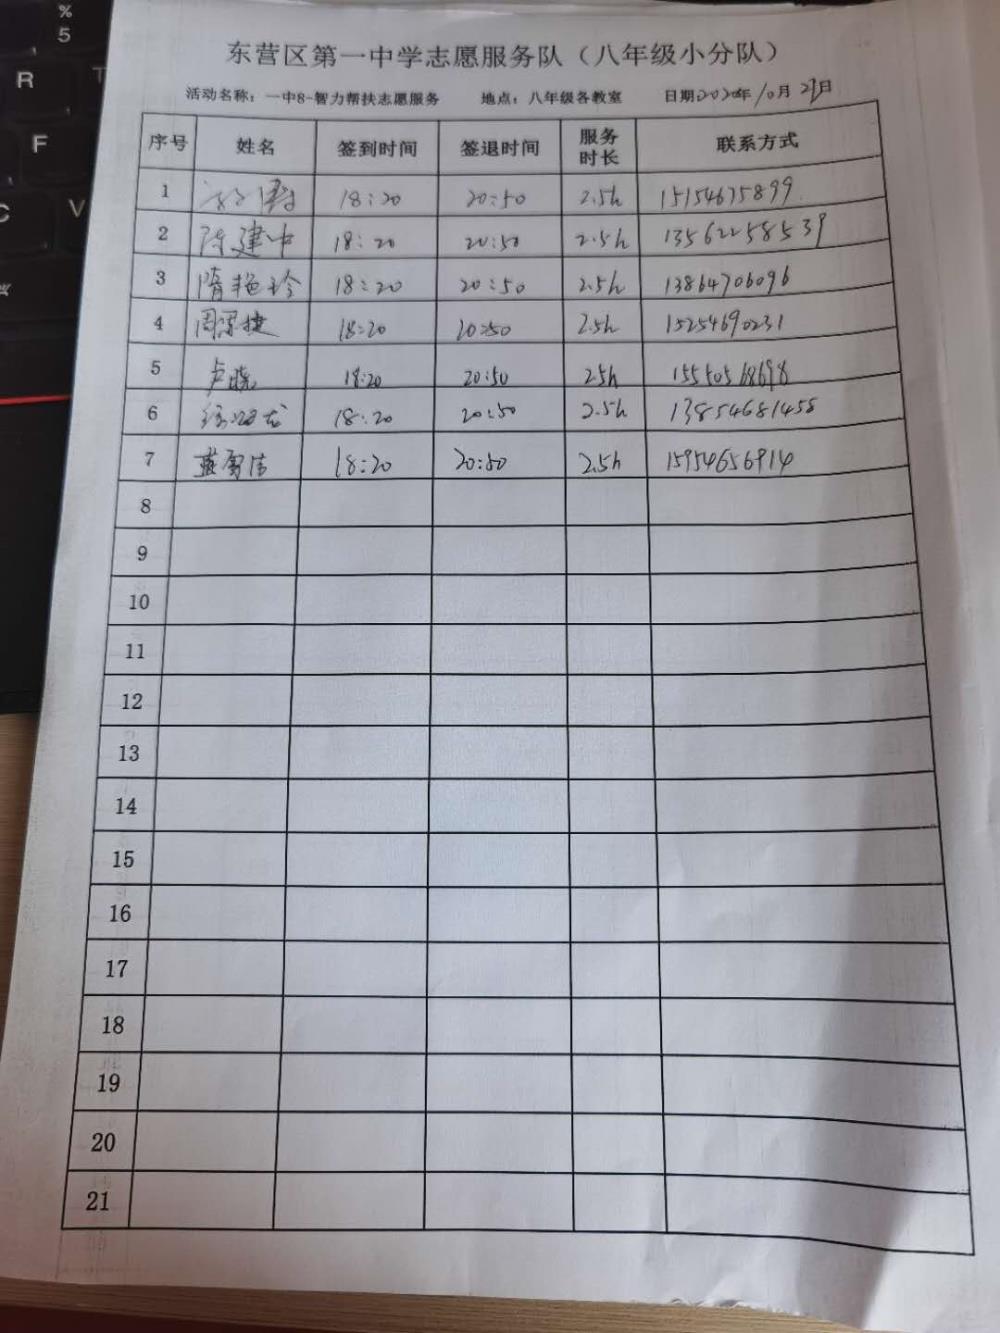 东营区第一中学志愿服务队（八年级小分队）
活动名称：一中8-智力帮扶志愿服务 地点：八年级各教室 日期2020年10月23日
序号 姓名 签到时间 签退时间 服务时长 联系方式
1 18:20 20:50 2.5h 15154675899
2 陈建中 18:20 20:50 2.5h 13562258539
3 隋艳玲 18:20 20:50 2.5h 13864706096
4 周 捷 18:20 20:50 2.5h 15254690231
5 卢晓 18:20 20:50 2.5h 15550568698
6 18:20 20:50 2.5h 13854681458
7 18:20 20:50 2.5h 15954656914
8
9
10
11
12
13
14
15
16
17
18
19
20
21
%
5
R
T
F
C
V